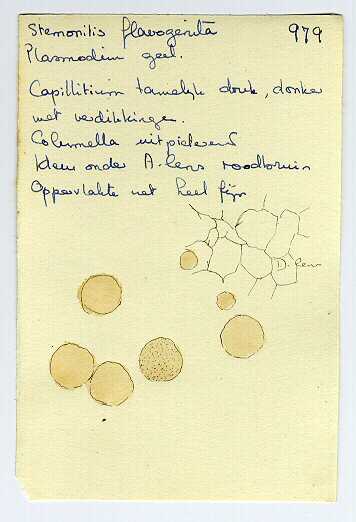 Stemonitis flavogenita 979
Plasmodium geel.
Capillitium tamelijk druk, donker
met verdikkingen.
Columella uitpielerend
Kleur onder A-lens roodbruin
Oppervlakte net heel fijn
D. lens